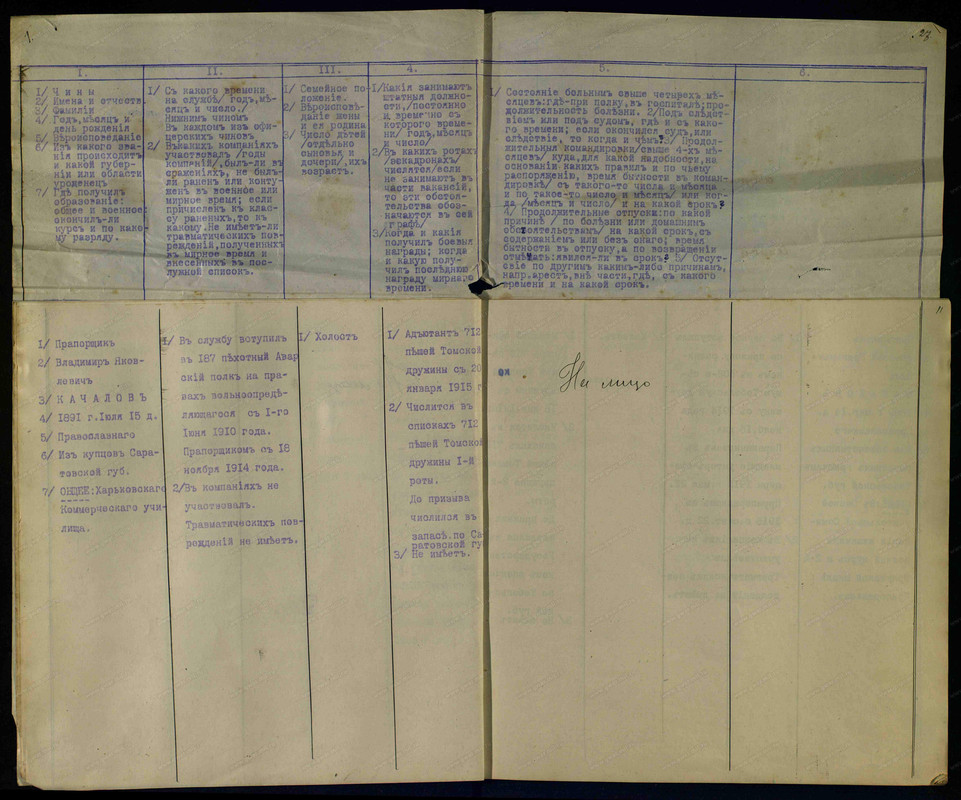 1.
23
I.
II.
III.
4.
5.
6.
1/ Чины
2/ Имена и отчеств.
3/ Фамиліи
4/ Годъ, мѣсяцъ и
день рожденія
5/ Вѣроисповѣданіе
6/ Изъ какого зва-
нія происходитъ
и какой губер-
ніи или области
уроженецъ
7/ Гдѣ получил
образованіе:
общее и военное:
окончилъ-ли
курсъ и по како-
му разряду.
1/ Съ какого времени
на службѣ/ годъ, мѣ-
сяцъ и число./
Нижнимъ чиномъ
Въ каждомъ изъ офи-
церскихъ чиновъ
2/ Въкакихъ компаніяхъ
участвовалъ /годы
компаній/, былъ-ли въ
сраженіяхъ, не былъ-
ли раненъ или конту-
женъ въ военное или
мирное время; если
причисленъ къ клас-
су раненыхъ, то къ
какому. Не имѣетъ-ли
травматическихъ пов-
режденій, полученныхъ
въ мирное время и
внесенныхъ въ пос-
лужной списокъ.
1/ Семейное по-
ложеніе.
2/ Вѣроисповѣ-
даніе жены
и ея родина
3/ Число дѣтей
/отдѣльно
сыновья и
дочери/, ихъ
возрастъ.
1/Какія занимаютъ
штатныя должно-
сти, /постоянно
и временно съ
которого време-
ни/ годъ, мѣсяцъ
и число/
2/Въ какихъ ротахъ
/эскадронахъ/
числятся/если
не занимаютъ въ
части вакансій,
то эти обстоя-
тельства обоз-
начаются въ сей
графѣ/
3/когда и какія
получилъ боевыя
награды; когда
и какую полу-
чилъ послѣднюю
награду мирнаго
времени.
1/ Состояніе больнымъ свыше четырехъ мѣ-
сяцевъ:гдѣ-при полку, въ госпиталѣ;про-
должительность болѣзни. 2/Подъ слѣдст-
віемъ или подъ судомъ, гдѣ и съ како-
го времени; если окончился судъ, или
слѣдствіе, то когда и чѣмъ:3/ Продол-
жительныя командировки/свыше 4-хъ мѣ-
сяцевъ/ куда, для какой надобности, на
основаніи какихъ правилъ и по чьему
распоряженію, время бытности въ коман-
дировкѣ/ съ такого-то числа и мѣсяца
и по такое-то число и мѣсяцъ/ или ког-
да /мѣсяцъ и число/ и на какой срокъ;
4/ Продолжительные отпуска:по какой
причинѣ / по болѣзни или домашнимъ
обстоятельствамъ/ на какой срокъ, съ
содержаніемъ или безъ онаго; время
бытности въ отпуску, а по возвращеніи
отмѣчать:явился-ли въ срокъ; 5/ Отсут-
ствіе по другимъ какимъ-либо причинамъ,
напр. арестъ, внѣ части, гдѣ, съ какого
времени и на какой срокъ.
11
1/ Прапорщикъ
2/ Владимиръ Яков-
левичъ
3/ КАЧАЛОВЪ
4/ 1891 г.Іюля 15 д.
5/ Православнаго
6/ Изъ купцовъ Сара-
товской губ.
7/ ОБЩЕЕ:Харьковскаго
Коммерческаго учи-
лища.
1/ Въ службу вступилъ
въ 187 пѣхотный Авар
скій полкъ на пра-
вахъ вольноопредѣ-
ляющагося съ I-го
Іюня 1910 года.
Прапорщикомъ съ 18
ноября 1914 года.
2/Въ компаніяхъ не
участвовалъ.
Травматическихъ пов-
режденій не имѣетъ.
1/ Холостъ
1/ Адъютантъ 712
пѣшей Томской
дружины съ 20
января 1915 г
2/ Числится въ
спискахъ 712
пѣшей Томской
дружины I-й
роты.
До призыва
числился въ
запасѣ.по Са
ратовской гу
3/ Не имѣетъ.
На лицо